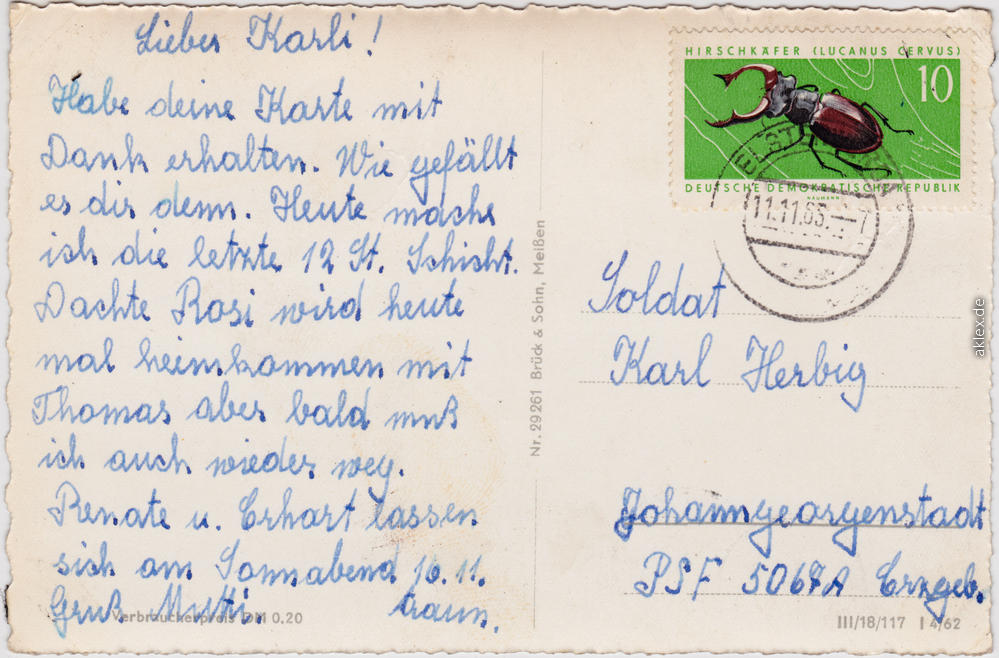 Lieber Karli!
Habe deine Karte mit
Dank erhalten. Wie gefällt
es dir denn. Heute mache
ich die letzte 12 St. Schicht.
Dachte Rosi wird heute
mal heimkommen mit
Thomas aber bald muß
ich auch wieder weg.
Renate u. Erhart lassen
sich am Sonnabend 16.11.
Gruß Mutti traun.
Verbraucherpreis DM 0.20
Nr. 29261 Brück & Sohn, Meißen
HIRSCHKÄFER (LUCANUS CERVUS)
10
DEUTSCHE DEMOKRATISCHE REPUBLIK
NAUMANN
11.11.63.–7
Soldat
Karl Herbig
Johanngeorgenstadt
PSF 5067A Erzgeb.
III/18/117 I 4/62
aklex.de